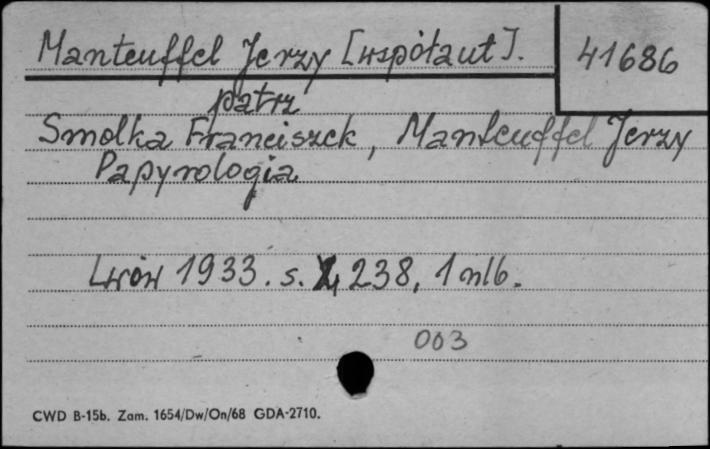 Manteuffel Jerzy [współaut].
41686
patrz
Smolka Franciszek, Manteuffel Jerzy
Papyrologia
Lwów 1933. s. 238, 1 nlb.
003
CWD B-15b. Zam. 1654/Dw/On/68 GDA-2710.